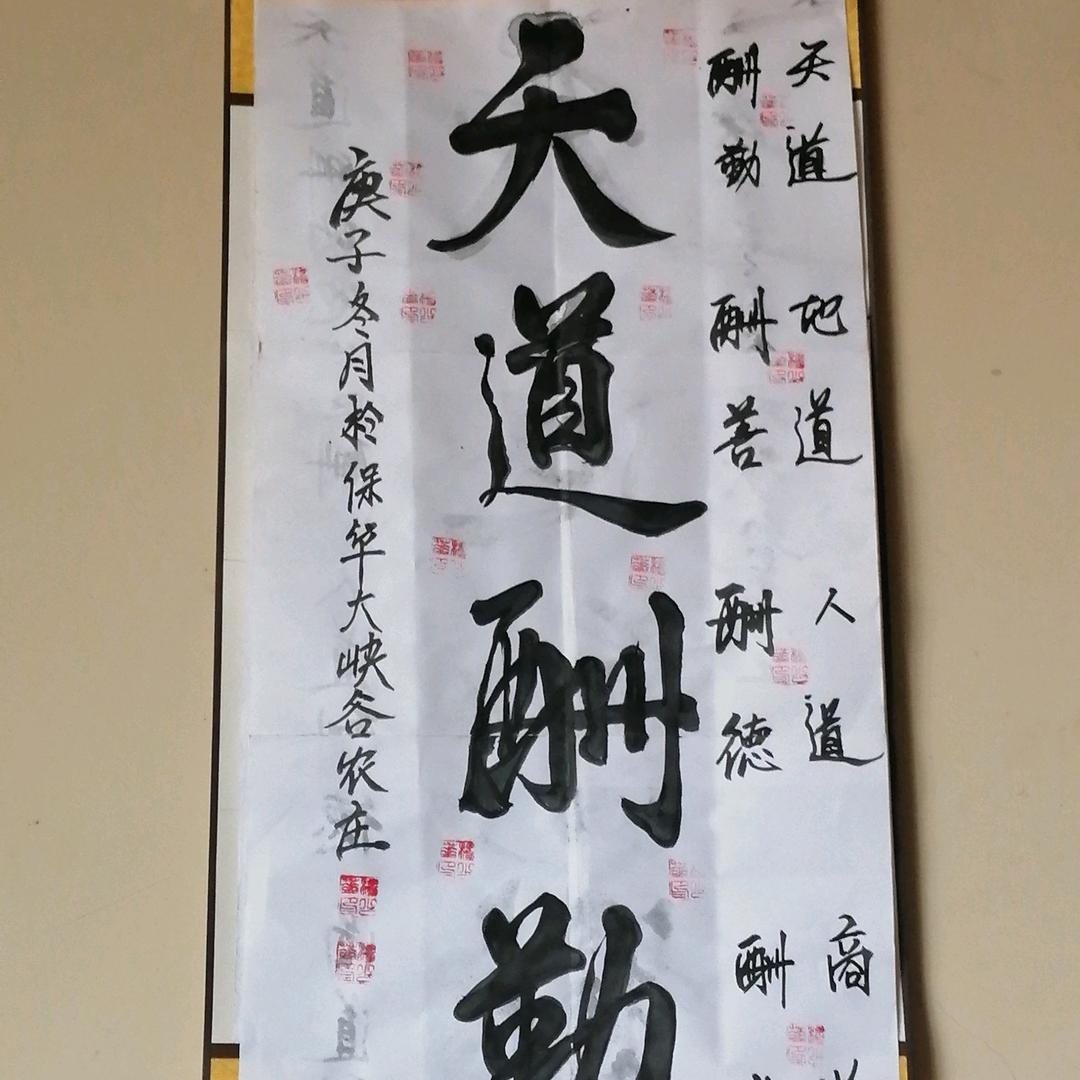 天道
酬勤
地道
酬善
人道
酬德
商
酬
天道酬勤
庚子冬月於保华大峡谷农庄